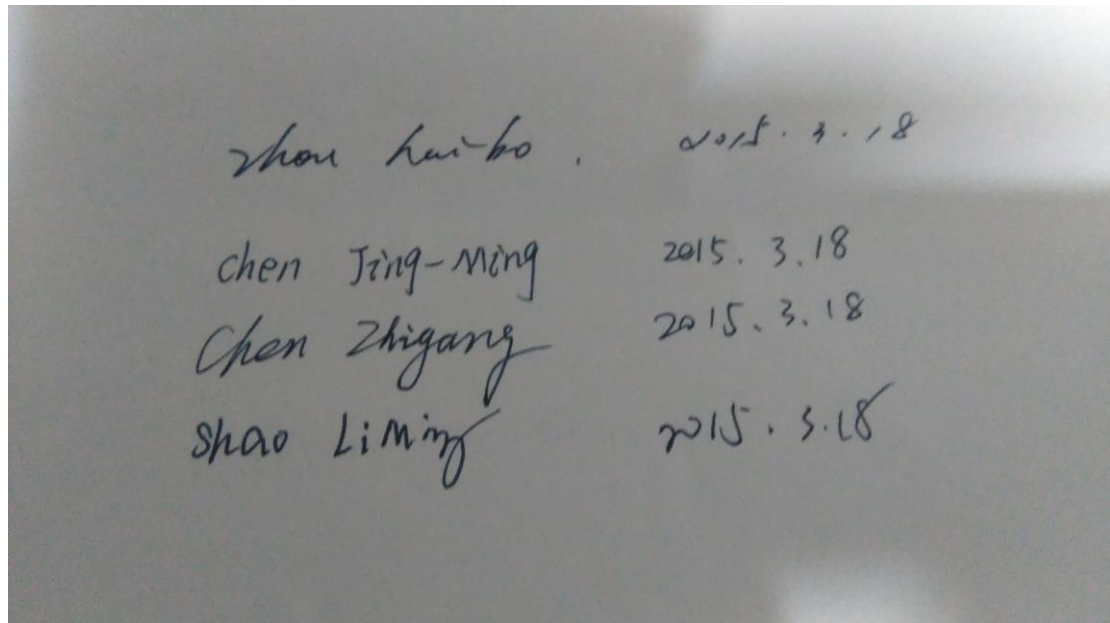 zhou hai-bo. 2015.3.18
Chen Jing-Ming 2015.3.18
Chen Zhigang 2015.3.18
Shao LiMing 2015.3.18